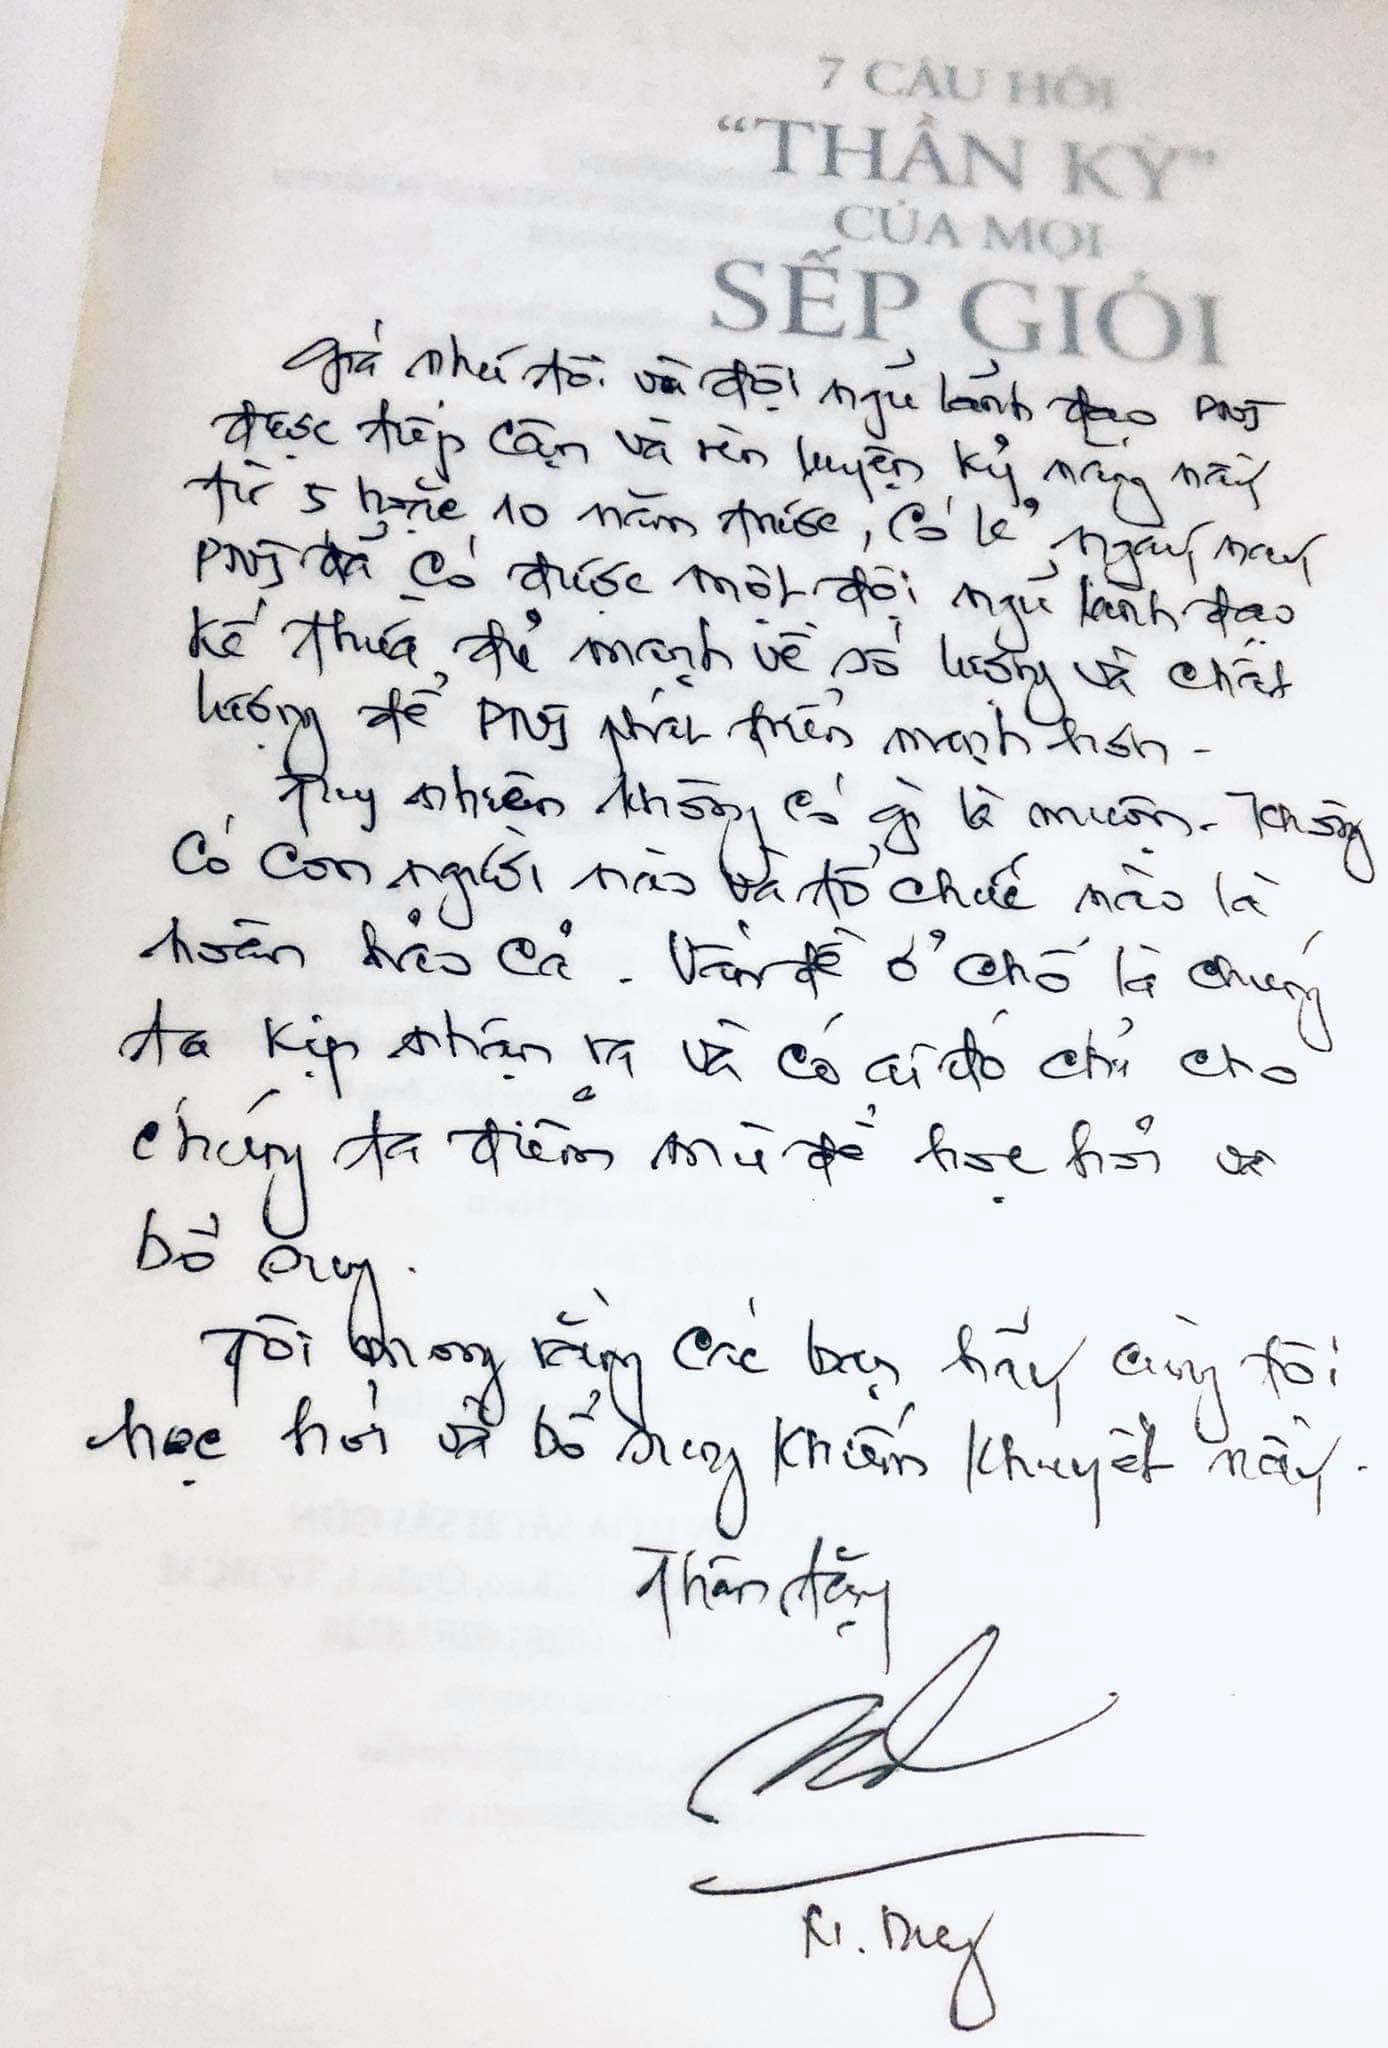 7 CÂU HỎI
“THẦN KỲ”
CỦA MỌI
SẾP GIỎI
Giá như tôi và đội ngũ lãnh đạo PNJ
được tiếp cận và rèn luyện kỷ năng này
từ 5 hoặc 10 năm trước, có lẽ ngày nay
PNJ đã có được một đội ngũ lãnh đạo
kế thừa đủ mạnh về số lượng và chất
lượng để PNJ phát triển mạnh hơn -
Tuy nhiên không có gì là muộn - Không
có con người nào và tổ chức nào là
hoàn hảo cả. Vấn đề ở chỗ là chúng
ta kịp nhận ra và có ai đó chỉ cho
chúng ta điểm mù để học hỏi và
bổ sung.
Tôi mong rằng các bạn hãy cùng tôi
học hỏi và bổ sung khiếm khuyết này.
Thân tặng